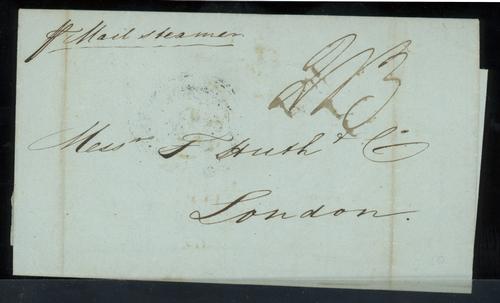 pr Mail steamer
2/3
Messrs F Huth & Co
London.